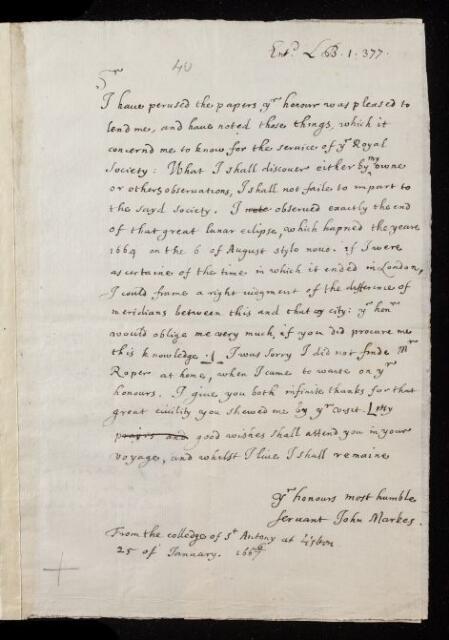 Ent.d L B. 1. 377.
40
Sr
I have perused the papers yr honour was pleased to
lend me, and have noted those things, which it
concernd me to know for the service of yr Royal
Society: What I shall discover either by my owne
or others observations, I shall not faile to impart to
the sayd Society. I note observed exactly the end
of that great lunar eclipse, which hapned the yeare
1664 on the 6 of August stylo novo. if I were
as certaine of the time in which it ended in London,
I could frame a right iudgment of the difference of
meridians between this and that city: yr honrs
would oblige me very much, if you did procure me
this knowledge. I was sorry I did not finde Mr
Roper at home, when I came to waite on yr
honours. I give you both infinite thanks for that
great civility you shewed me by yr visit. My
prayrs and good wishes shall attend you in your
voyage, and whilst I live I shall remaine
yr honours most humble
servant John Markes.
From the colledge of St Antony at Lisbon
25 of January. 166